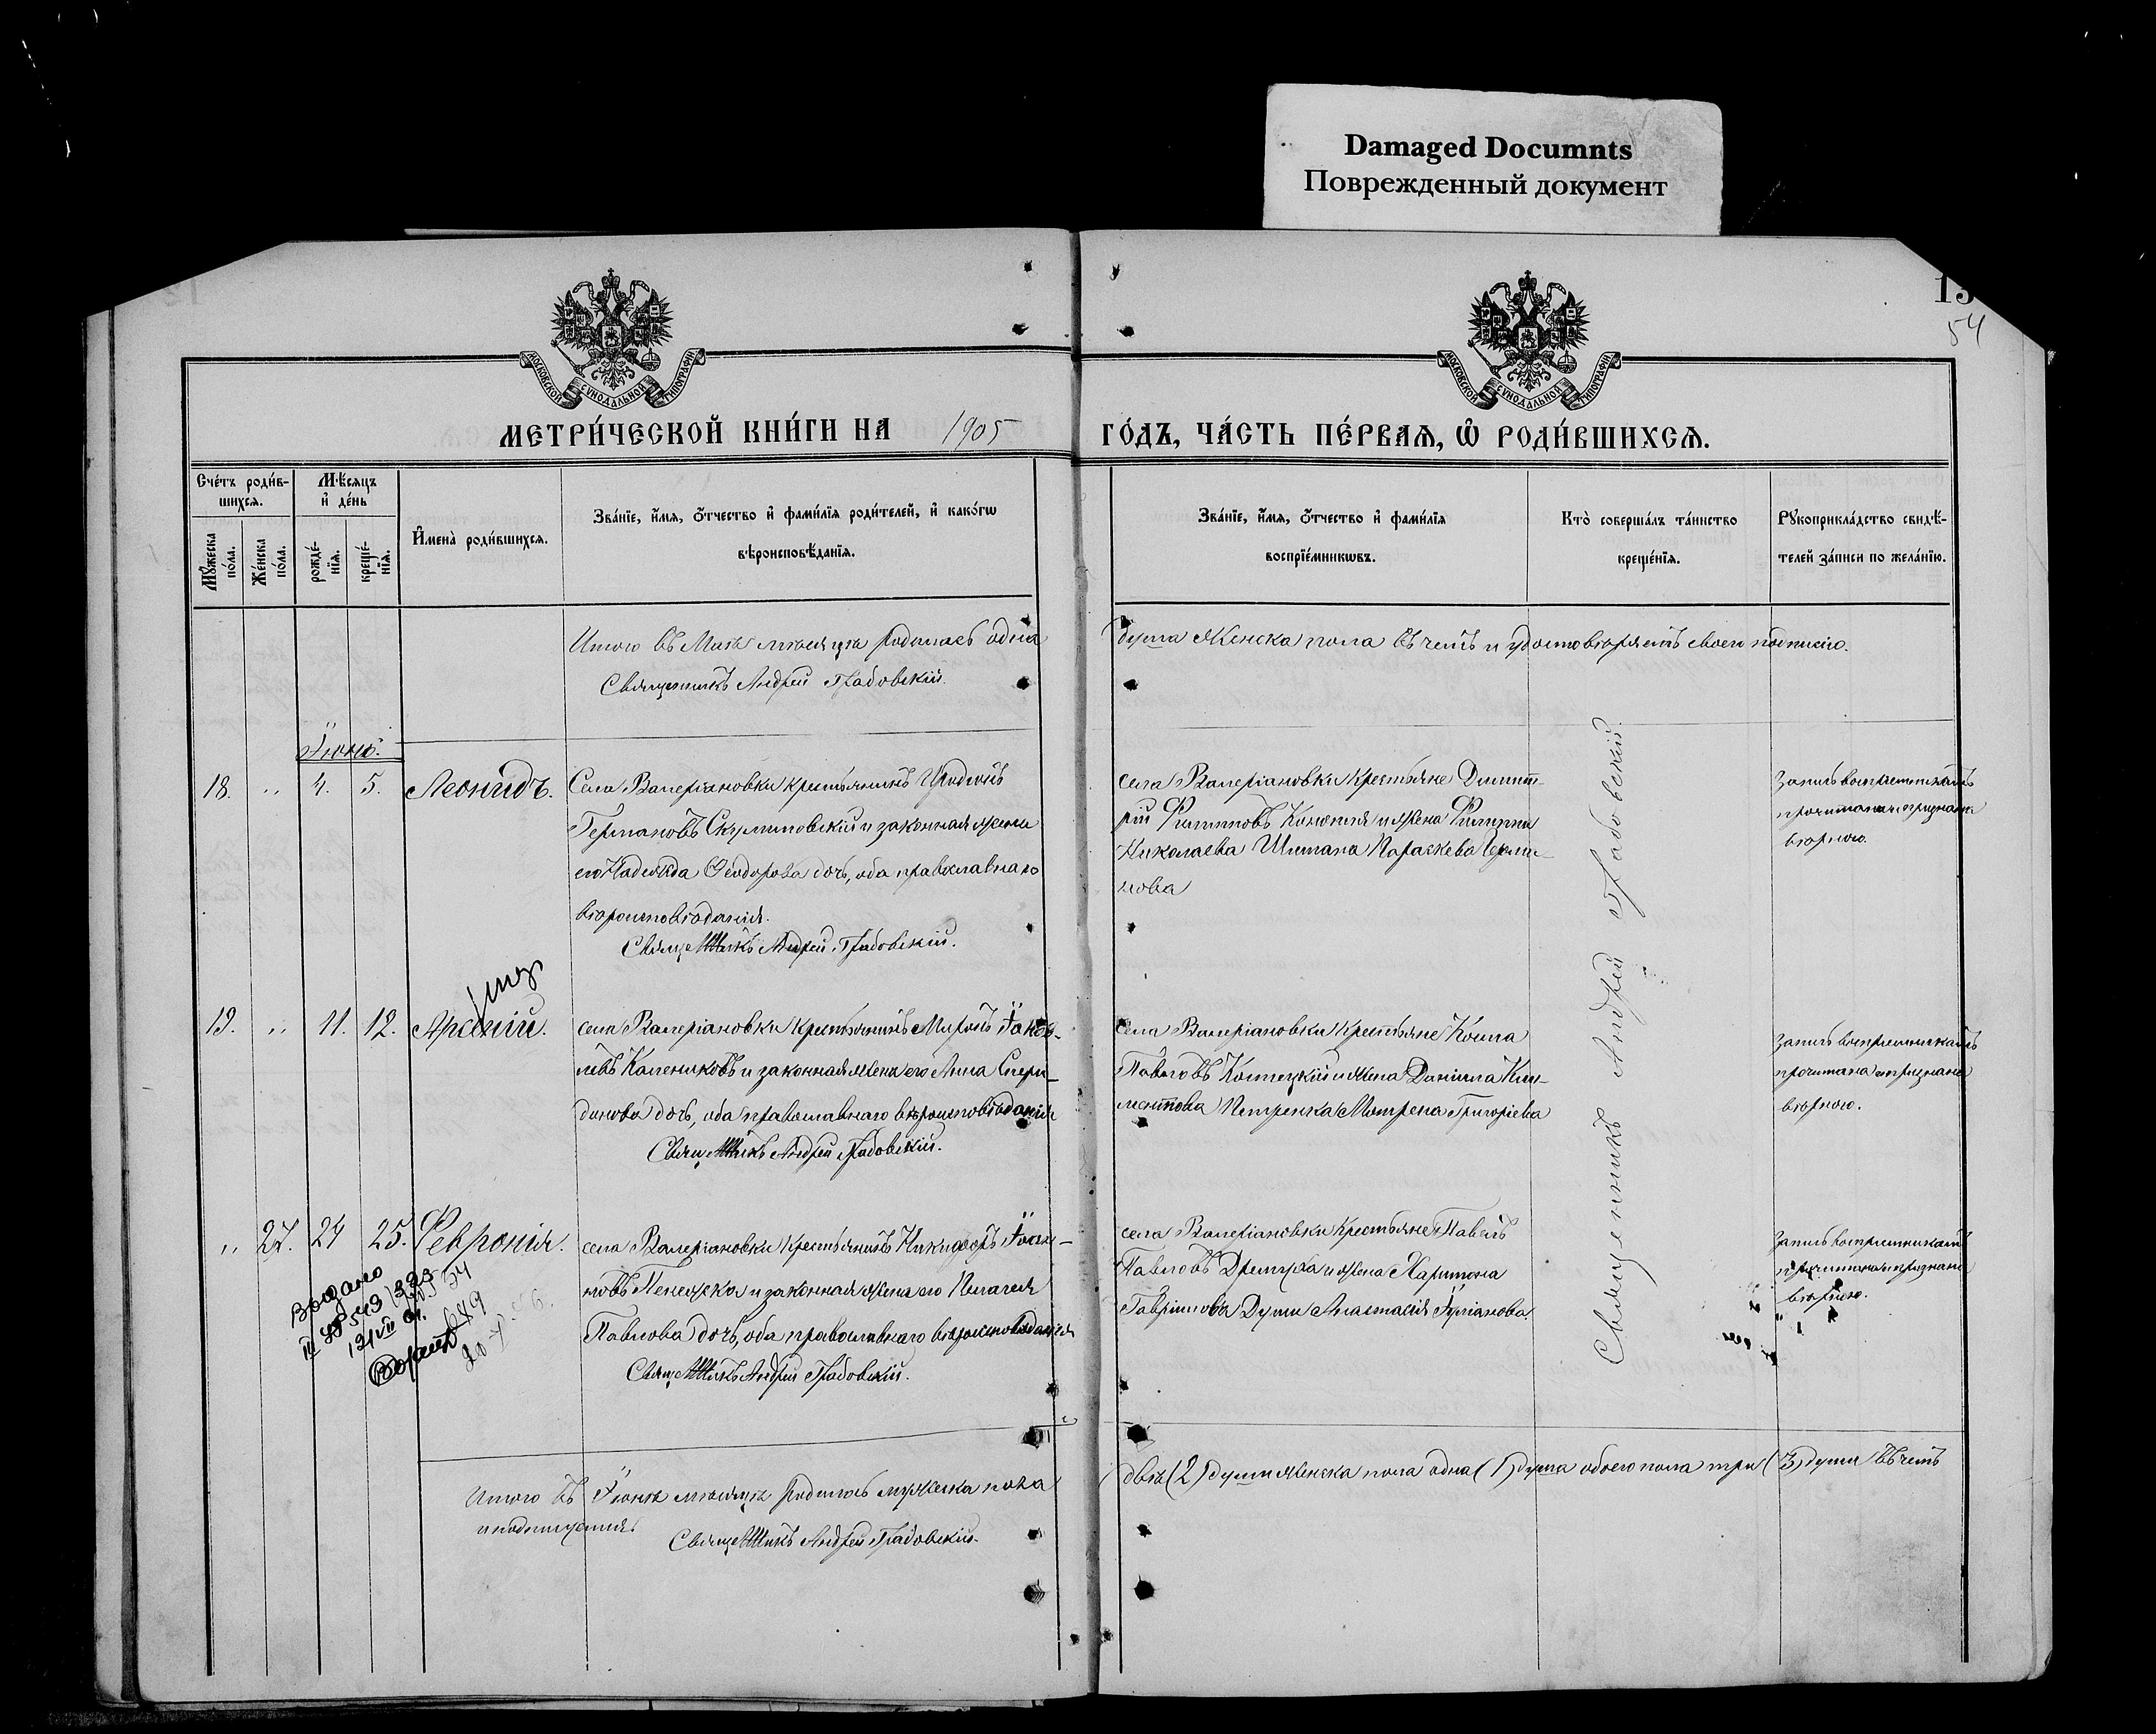 Damaged Documnts
Поврежденный документ
15
54
МОСКОВСКОЙ СѴНОДАЛЬНОЙ ТИПОГРАФІИ
МОСКОВСКОЙ СѴНОДАЛЬНОЙ ТИПОГРАФІИ
МЕТРИ́ЧЕСКОЙ КНИ́ГИ НА 1905 ГО́ДЪ, ЧА́СТЬ ПЕ́РВАЯ, Ѡ РОДИ́ВШИХСЯ.
Сче́тъ роди́в-
шихся.
Мꙋ́жеска по́ла.
Же́нска по́ла.
Мѣ́сяцъ и де́нь
рожде́-нїя.
креще́-нїя.
Имена̀ роди́вшихся.
Зва́нїе, и́мя, о́тчество и фами́лїя роди́телей, и како́гѡ
вѣроисповѣ́данїя.
Зва́нїе, и́мя, о́тчество и фами́лїя
воспрїе́мникѡвъ.
Кто̀ соверша́лъ та́инство
креще́нїя.
Рꙋкоприкла́дство свидѣ́-
телей за́писи по жела́нїю.
Итого въ Маѣ мѣсяцѣ родилась одна душа женска пола въ чемъ и удостовѣряемъ своею подписью.
Священникъ Андрей Грабовскій.
Іюнь.
18. " 4. 5. Леонидъ.
Села Валеріановки крестьянинъ Иродіонъ
Германовъ Скумиловскій и законная жена
его Надежда Ѳеодорова дочь, оба православнаго
вѣроисповѣданія.
Священникъ Андрей Грабовскій.
села Валеріановки крестьяне Димит-
рій Филипповъ и жена Филиппа
Николаева Параскева
нова
Запись воспріемникамъ
прочитана и признана
вѣрною.
19. " 11. 12. Арсеній.
села Валеріановки крестьянинъ Миронъ Іаков-
левъ Калениковъ и законная жена его Анна Спири-
донова дочь, оба православнаго вѣроисповѣданія
Священникъ Андрей Грабовскій.
села Валеріановки крестьяне Косма
Павловъ и жена Даніила Кли-
ментова Петренка Матрена Григоріева
Запись воспріемникамъ
прочитана и признана
вѣрною.
" 27. 24 25. Феврониія.
села Валеріановки крестьянинъ Никифоръ Іоан-
новъ и законная жена его Пелагея
Павлова дочь, оба православнаго вѣроисповѣданія
Священникъ Андрей Грабовскій.
села Валеріановки крестьяне Павелъ
Павловъ и жена Харитона
Гавріилова Анастасія Іуліанова.
Запись воспріемникамъ
прочитана и признана
вѣрною.
Выдано
Священникъ Андрей Грабовскій
Итого въ Іюнѣ мѣсяцѣ родилось мужеска пола двѣ (2) души женска пола одна (1) душа обоего пола три (3) души въ чемъ
и подпишемся.
Священникъ Андрей Грабовскій.